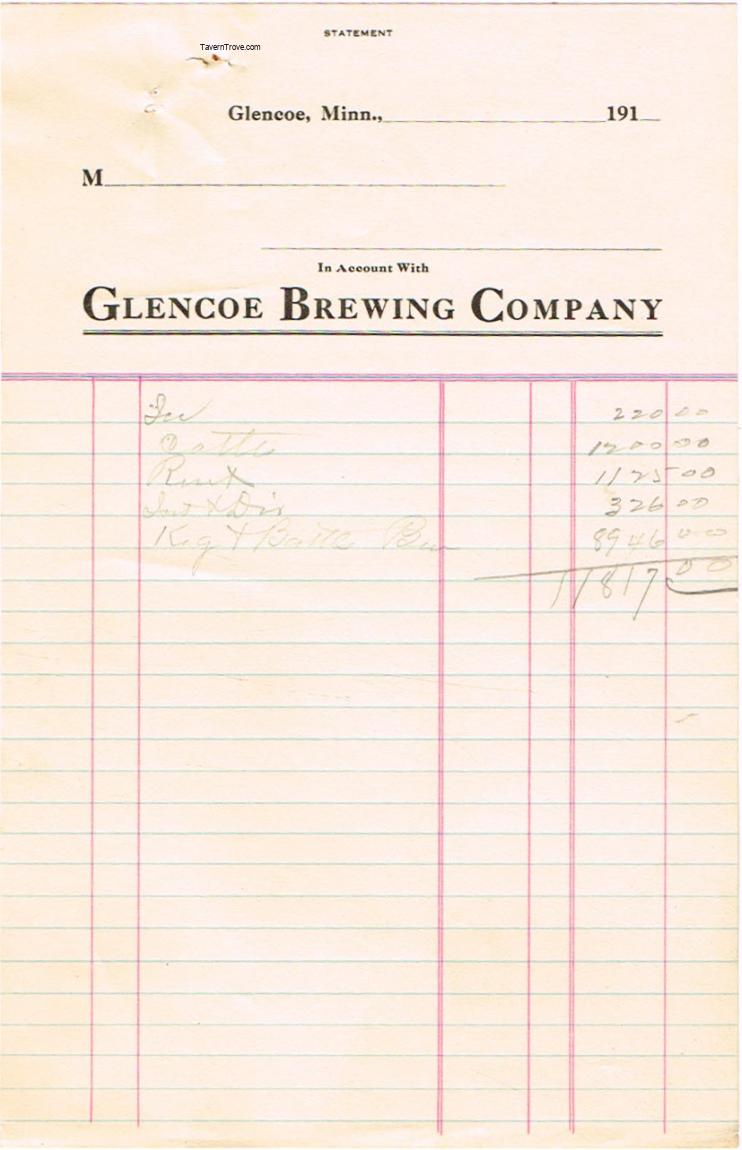 STATEMENT
TavernTrove.com
Glencoe, Minn., 191
M
In Account With
GLENCOE BREWING COMPANY
Ice 220 00
1200 00
Rent 1125 00
Int & Div 326 00
Keg & Bottle Beer 8946 00
11817 00